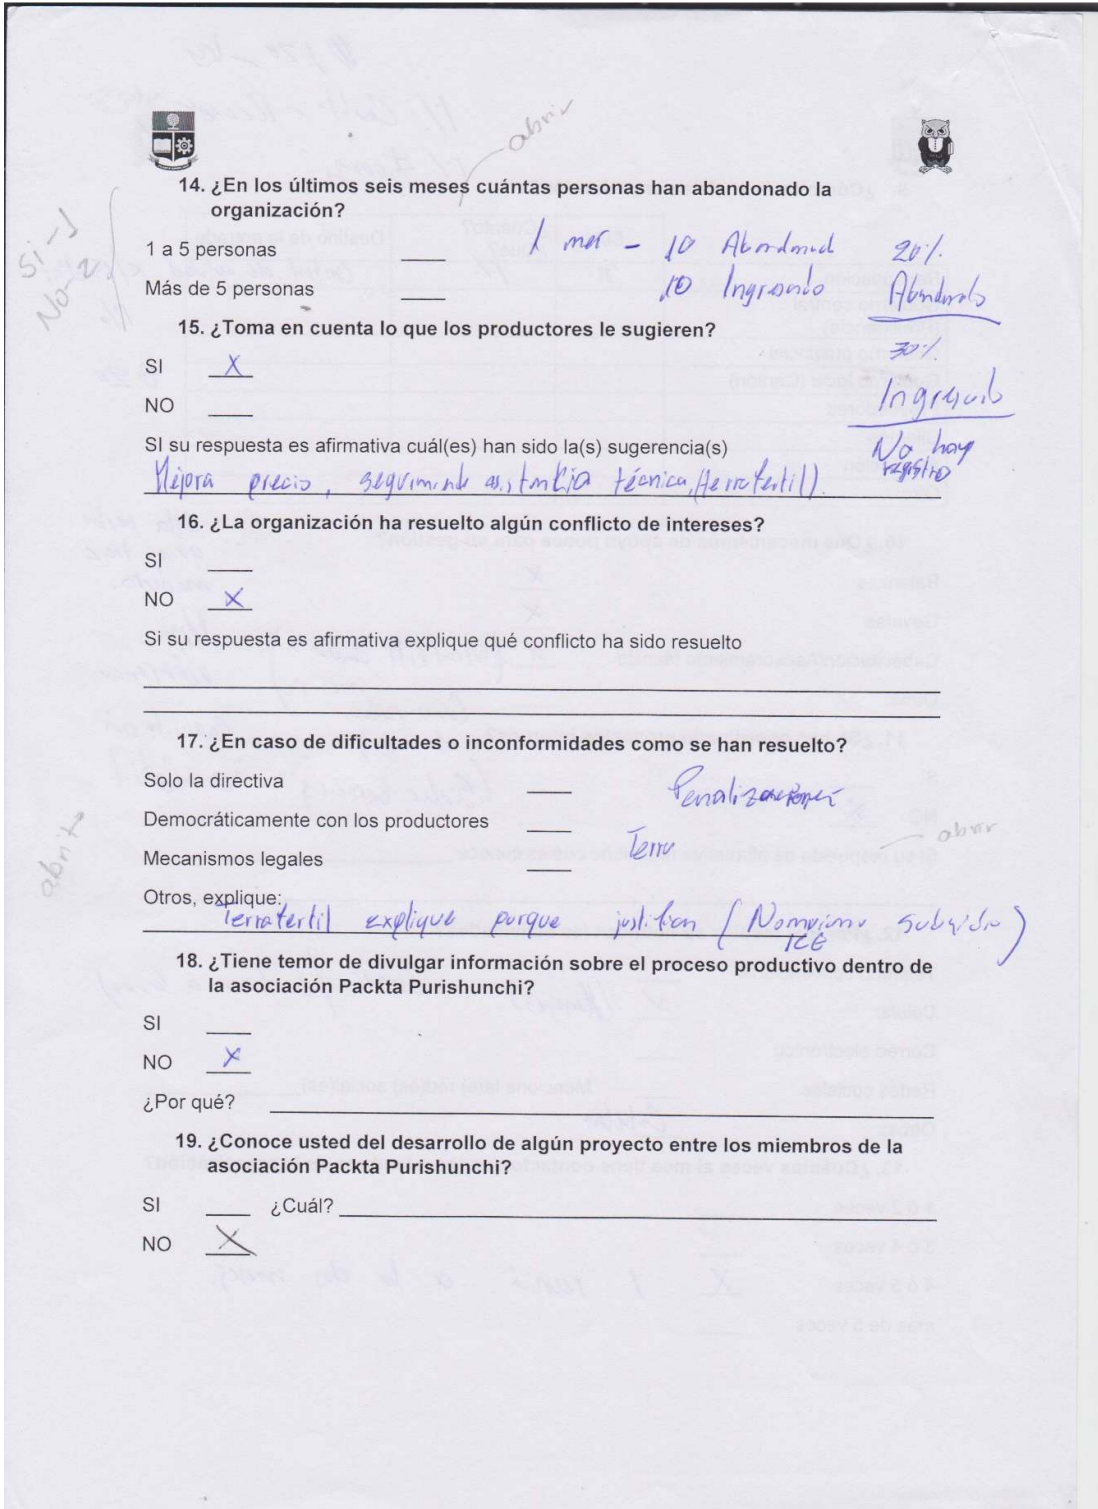 abrir
14. ¿En los últimos seis meses cuántas personas han abandonado la
organización?
Si-1
No-2
1 a 5 personas ____ 1 mes - 10 Abandonad 20%
Más de 5 personas ____ 10 Ingresando Abandonado
15. ¿Toma en cuenta lo que los productores le sugieren?
30%
SI X
Ingresando
NO ____
SI su respuesta es afirmativa cuál(es) han sido la(s) sugerencia(s)
No hay
registro
Mejora precio, seguimiento asistencia técnica (terrafertil)
16. ¿La organización ha resuelto algún conflicto de intereses?
SI ____
NO X
Si su respuesta es afirmativa explique qué conflicto ha sido resuelto
17. ¿En caso de dificultades o inconformidades como se han resuelto?
Solo la directiva ____
Democráticamente con los productores ____
abrir
Mecanismos legales ____ Terra
abrir
Otros, explique:
Terrafertil explique porque justifican (
ICE
18. ¿Tiene temor de divulgar información sobre el proceso productivo dentro de
la asociación Packta Purishunchi?
SI ____
NO X
¿Por qué? ____
19. ¿Conoce usted del desarrollo de algún proyecto entre los miembros de la
asociación Packta Purishunchi?
SI ____ ¿Cuál? ____
NO X